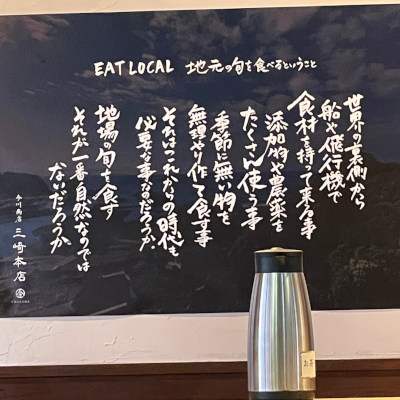 EAT LOCAL 地元の旬を食べるということ
世界の裏側から
船や飛行機で
食材を持って来る事
添加物や農薬を
たくさん使う事
季節に無い物を
無理やり作って食す事
それはこれからの時代も
必要な事なのだろうか
地場の旬を食す
それが一番自然なのでは
ないだろうか
三崎本店
お茶